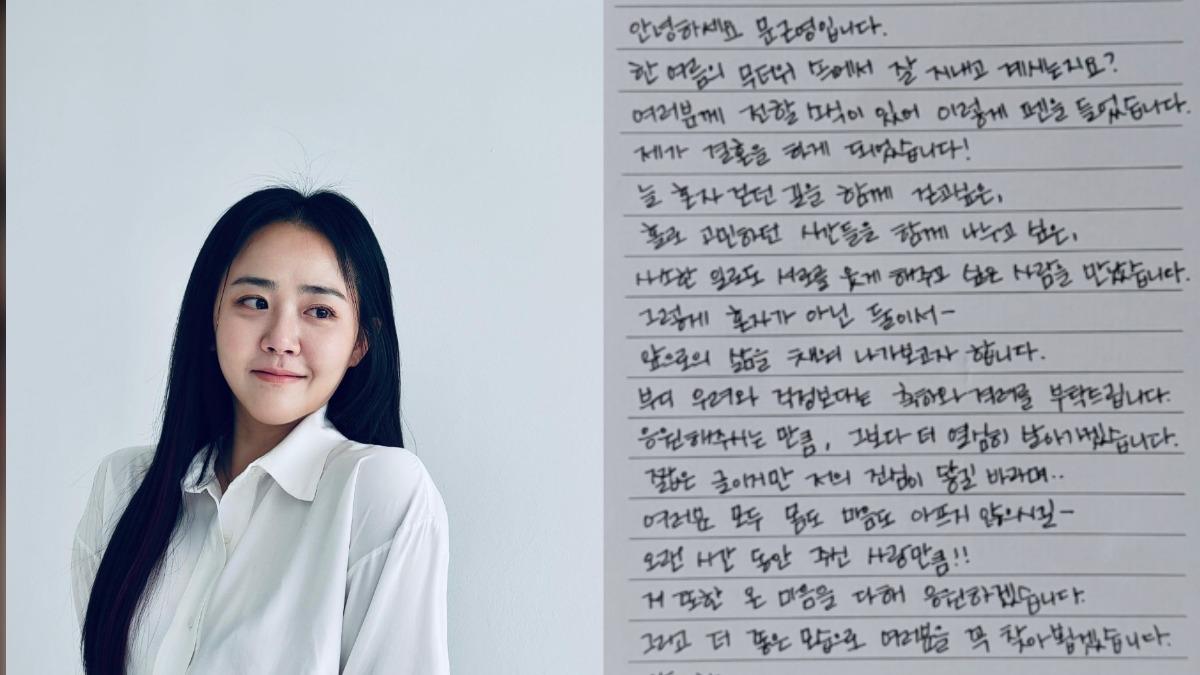 안녕하세요 문근영입니다.
한 여름의 무더위 속에서 잘 지내고 계시는지요?
여러분께 전할 소식이 있어 이렇게 펜을 들었습니다.
제가 결혼을 하게 되었습니다!
늘 혼자 걷던 길을 함께 걷고싶은,
홀로 고민하던 시간들을 함께 나누고 싶은,
사소한 일로도 서로를 웃게 해주고 싶은 사람을 만났습니다.
그렇게 혼자가 아닌 둘이서-
앞으로의 삶을 채워 나가보고자 합니다.
부디 우려와 걱정보다는 축하와 격려를 부탁드립니다.
응원해주시는 만큼, 그보다 더 열심히 살아가겠습니다.
짧은 글이지만 저의 진심이 닿길 바라며..
여러분 모두 몸도 마음도 아프지 않으시길-
오랜 시간 동안 주신 사랑만큼!!
저 또한 온 마음을 다해 응원하겠습니다.
그리고 더 좋은 모습으로 여러분을 꼭 찾아뵙겠습니다.